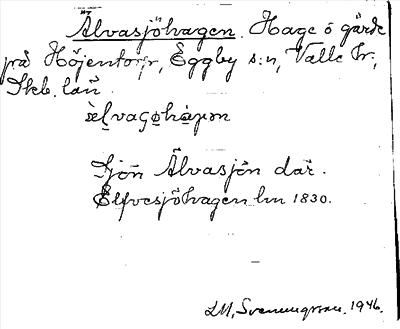 Älvasjöhagen. Hage ö gärde
på Höjentorp, Eggby s:n, Valle hr.,
Skb. län.
Sjön Älvasjön där.
Elfvesjöhagen lm 1830.
LM, Svenungsson. 1946.